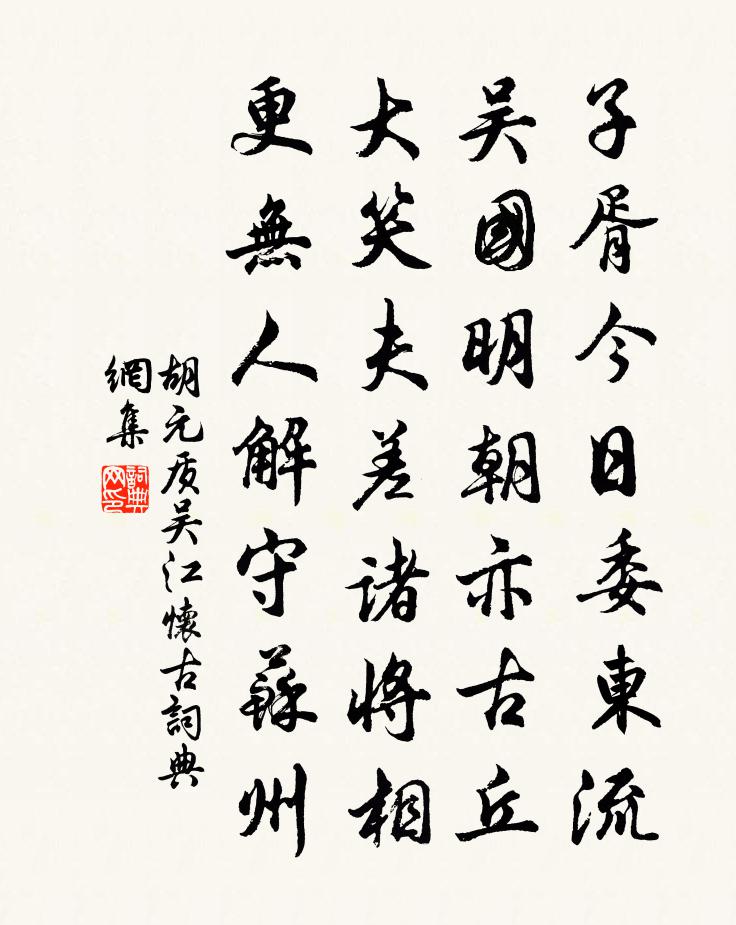 子胥今日委東流
吴國明朝亦古丘
大笑夫差諸將相
更無人解守蘇州
胡元质吴江懷古詞典
網集
詞典
网印